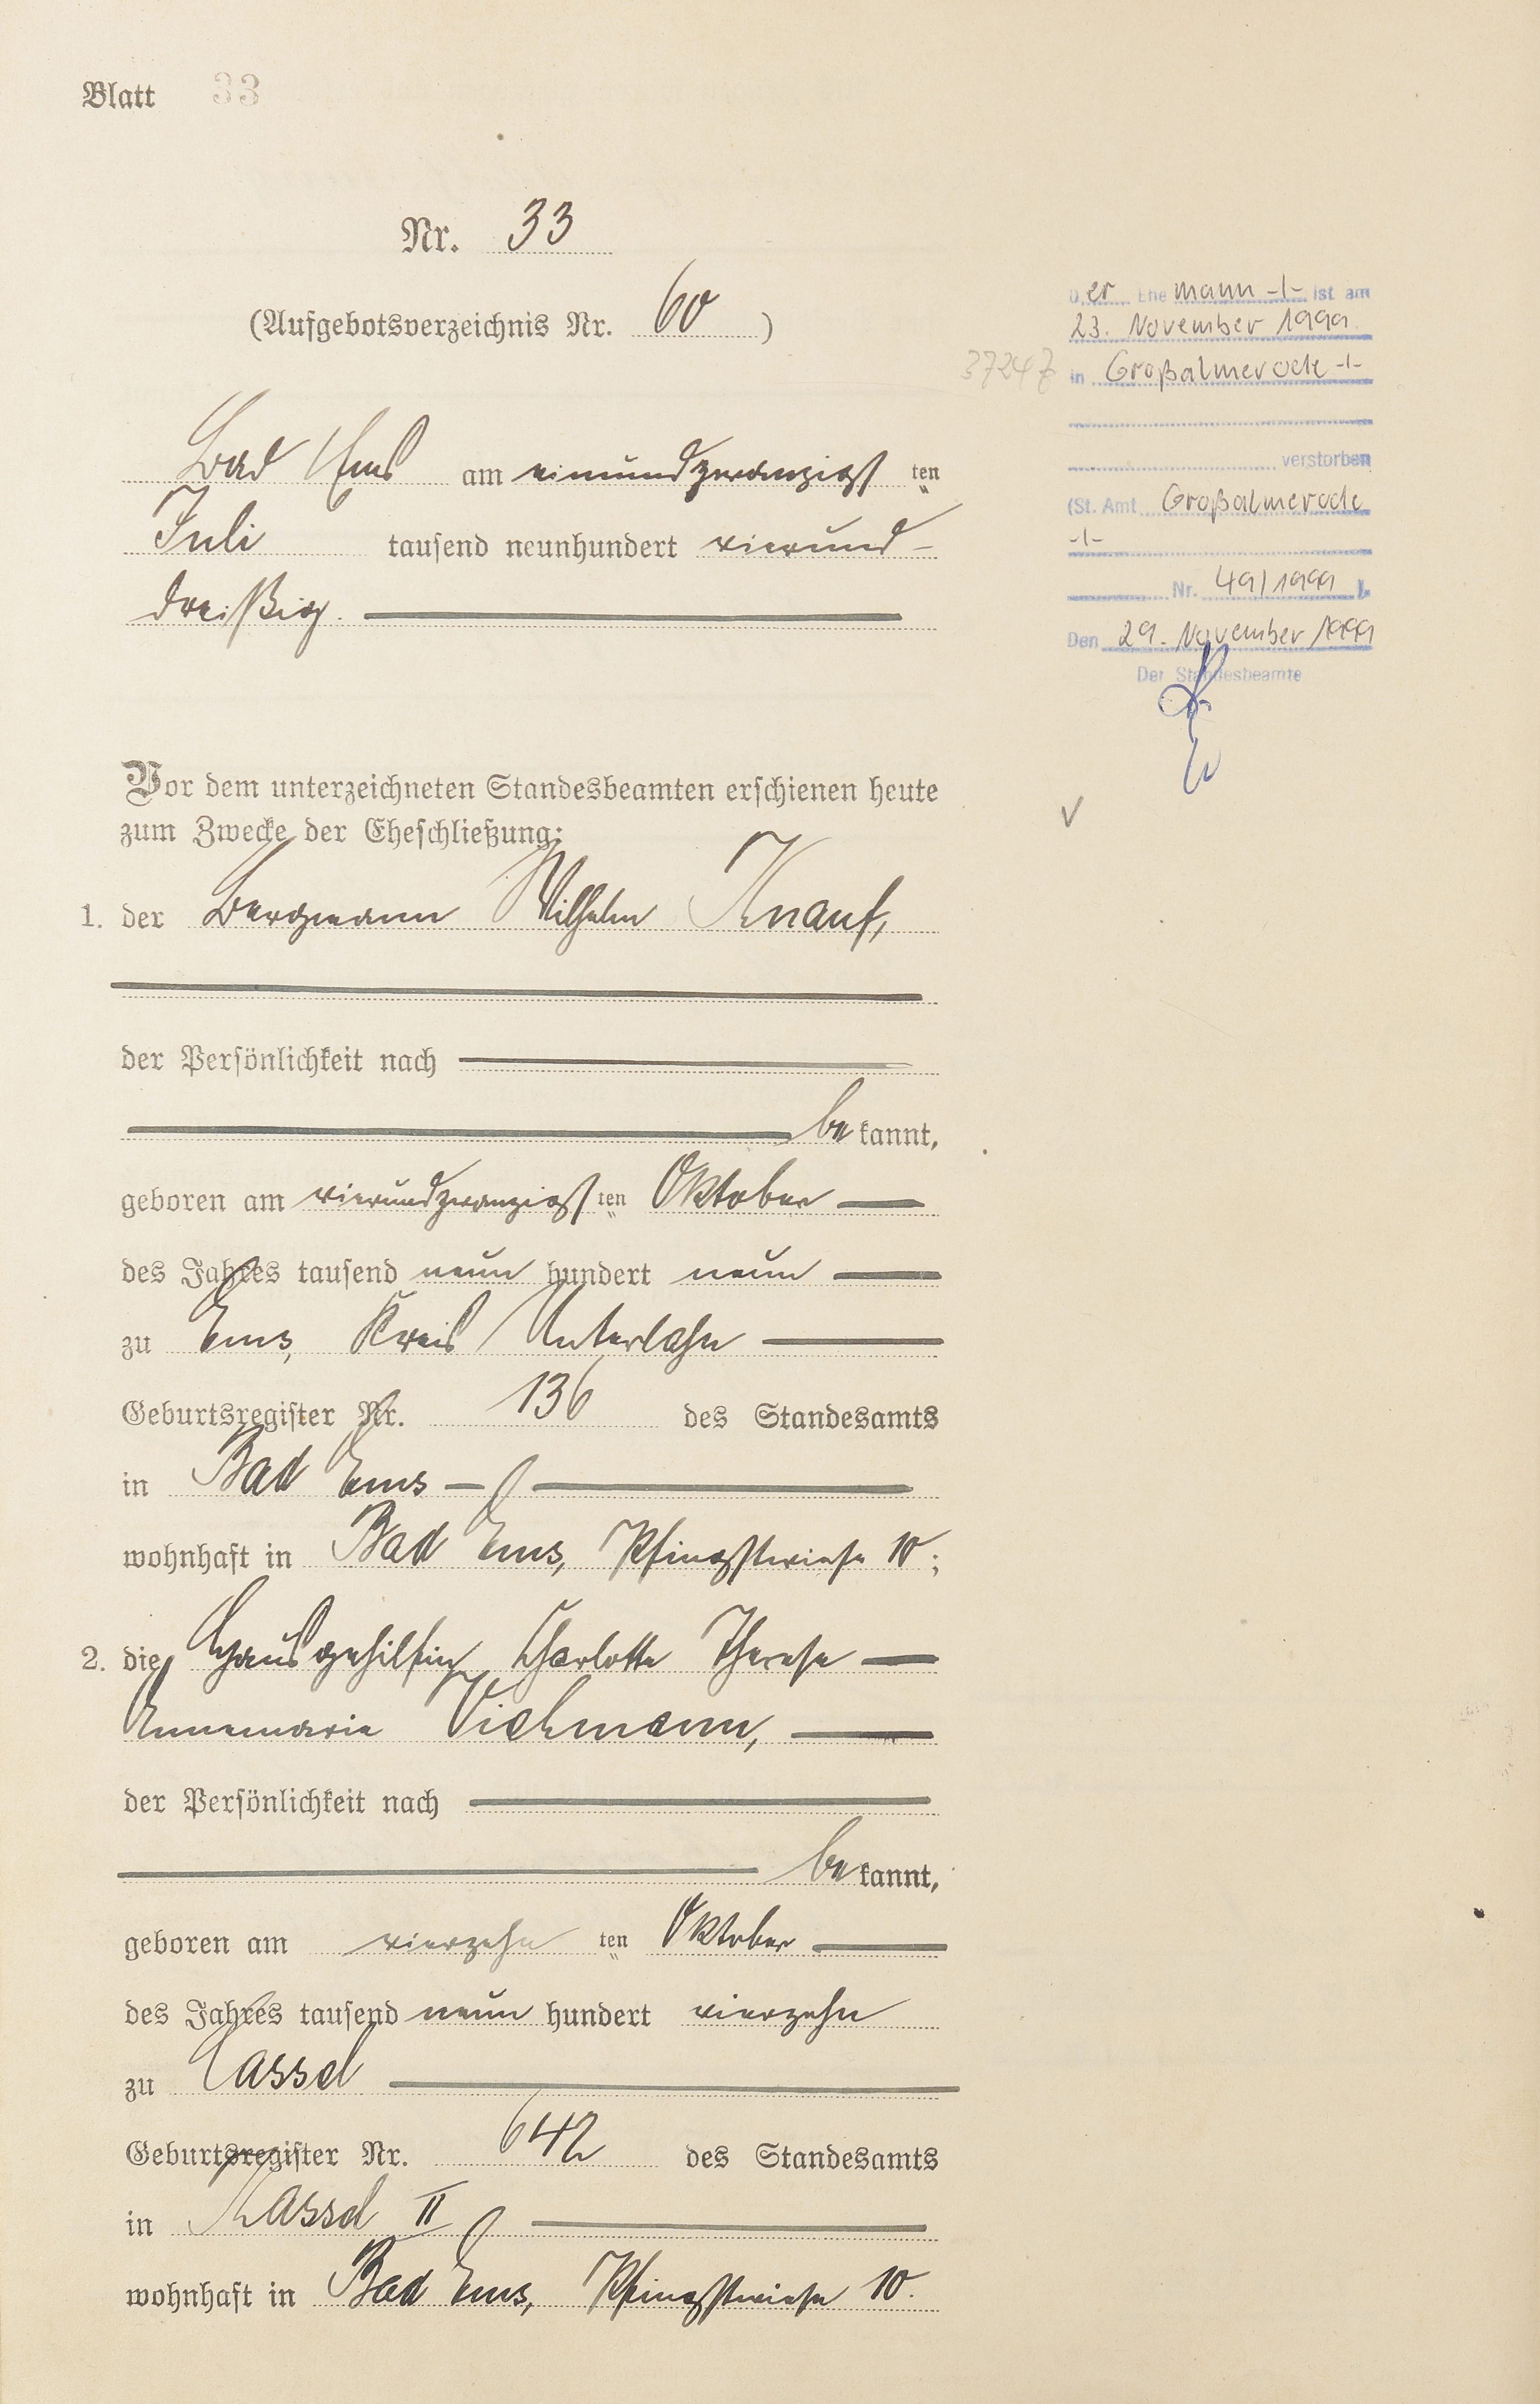 Blatt 33
Nr. 33
(Aufgebotsverzeichnis Nr. 60)
Bad Ems am einundzwanzigsten
Juli tausend neunhundert vierund-
dreißig.
Vor dem unterzeichneten Standesbeamten erschienen heute
zum Zwecke der Eheschließung:
1. der Bergmann Wilhelm Knauf,
der Persönlichkeit nach
bekannt,
geboren am vierundzwanzigsten Oktober
des Jahres tausend neun hundert neun
zu Ems, Kreis Unterlahn
Geburtsregister Nr. 136 des Standesamts
in Bad Ems
wohnhaft in Bad Ems, Pfingstwiese 10;
2. die Hausgehilfin Charlotte Therese
Annemarie Viehmann,
der Persönlichkeit nach
bekannt,
geboren am vierzehnten Oktober
des Jahres tausend neun hundert vierzehn
zu Cassel
Geburtsregister Nr. 642 des Standesamts
in Kassel II
wohnhaft in Bad Ems, Pfingstwiese 10.
Der Ehemann -/- ist am
23. November 1999
37247
in Großalmerode -/-
verstorben
(St. Amt Großalmerode
-/-
Nr. 49/1999 ).
Den 29. November 1999
Der Standesbeamte